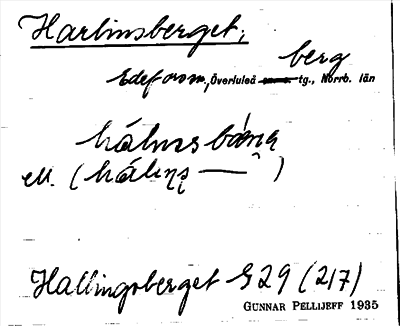 Harlinsberget,
berg
Edefors sn, Överluleå tg., Norrb. län
hálnsbärg
ell. (hálŋs — )
Hallingsberget S29 (217)
GUNNAR PELLIJEFF 1935